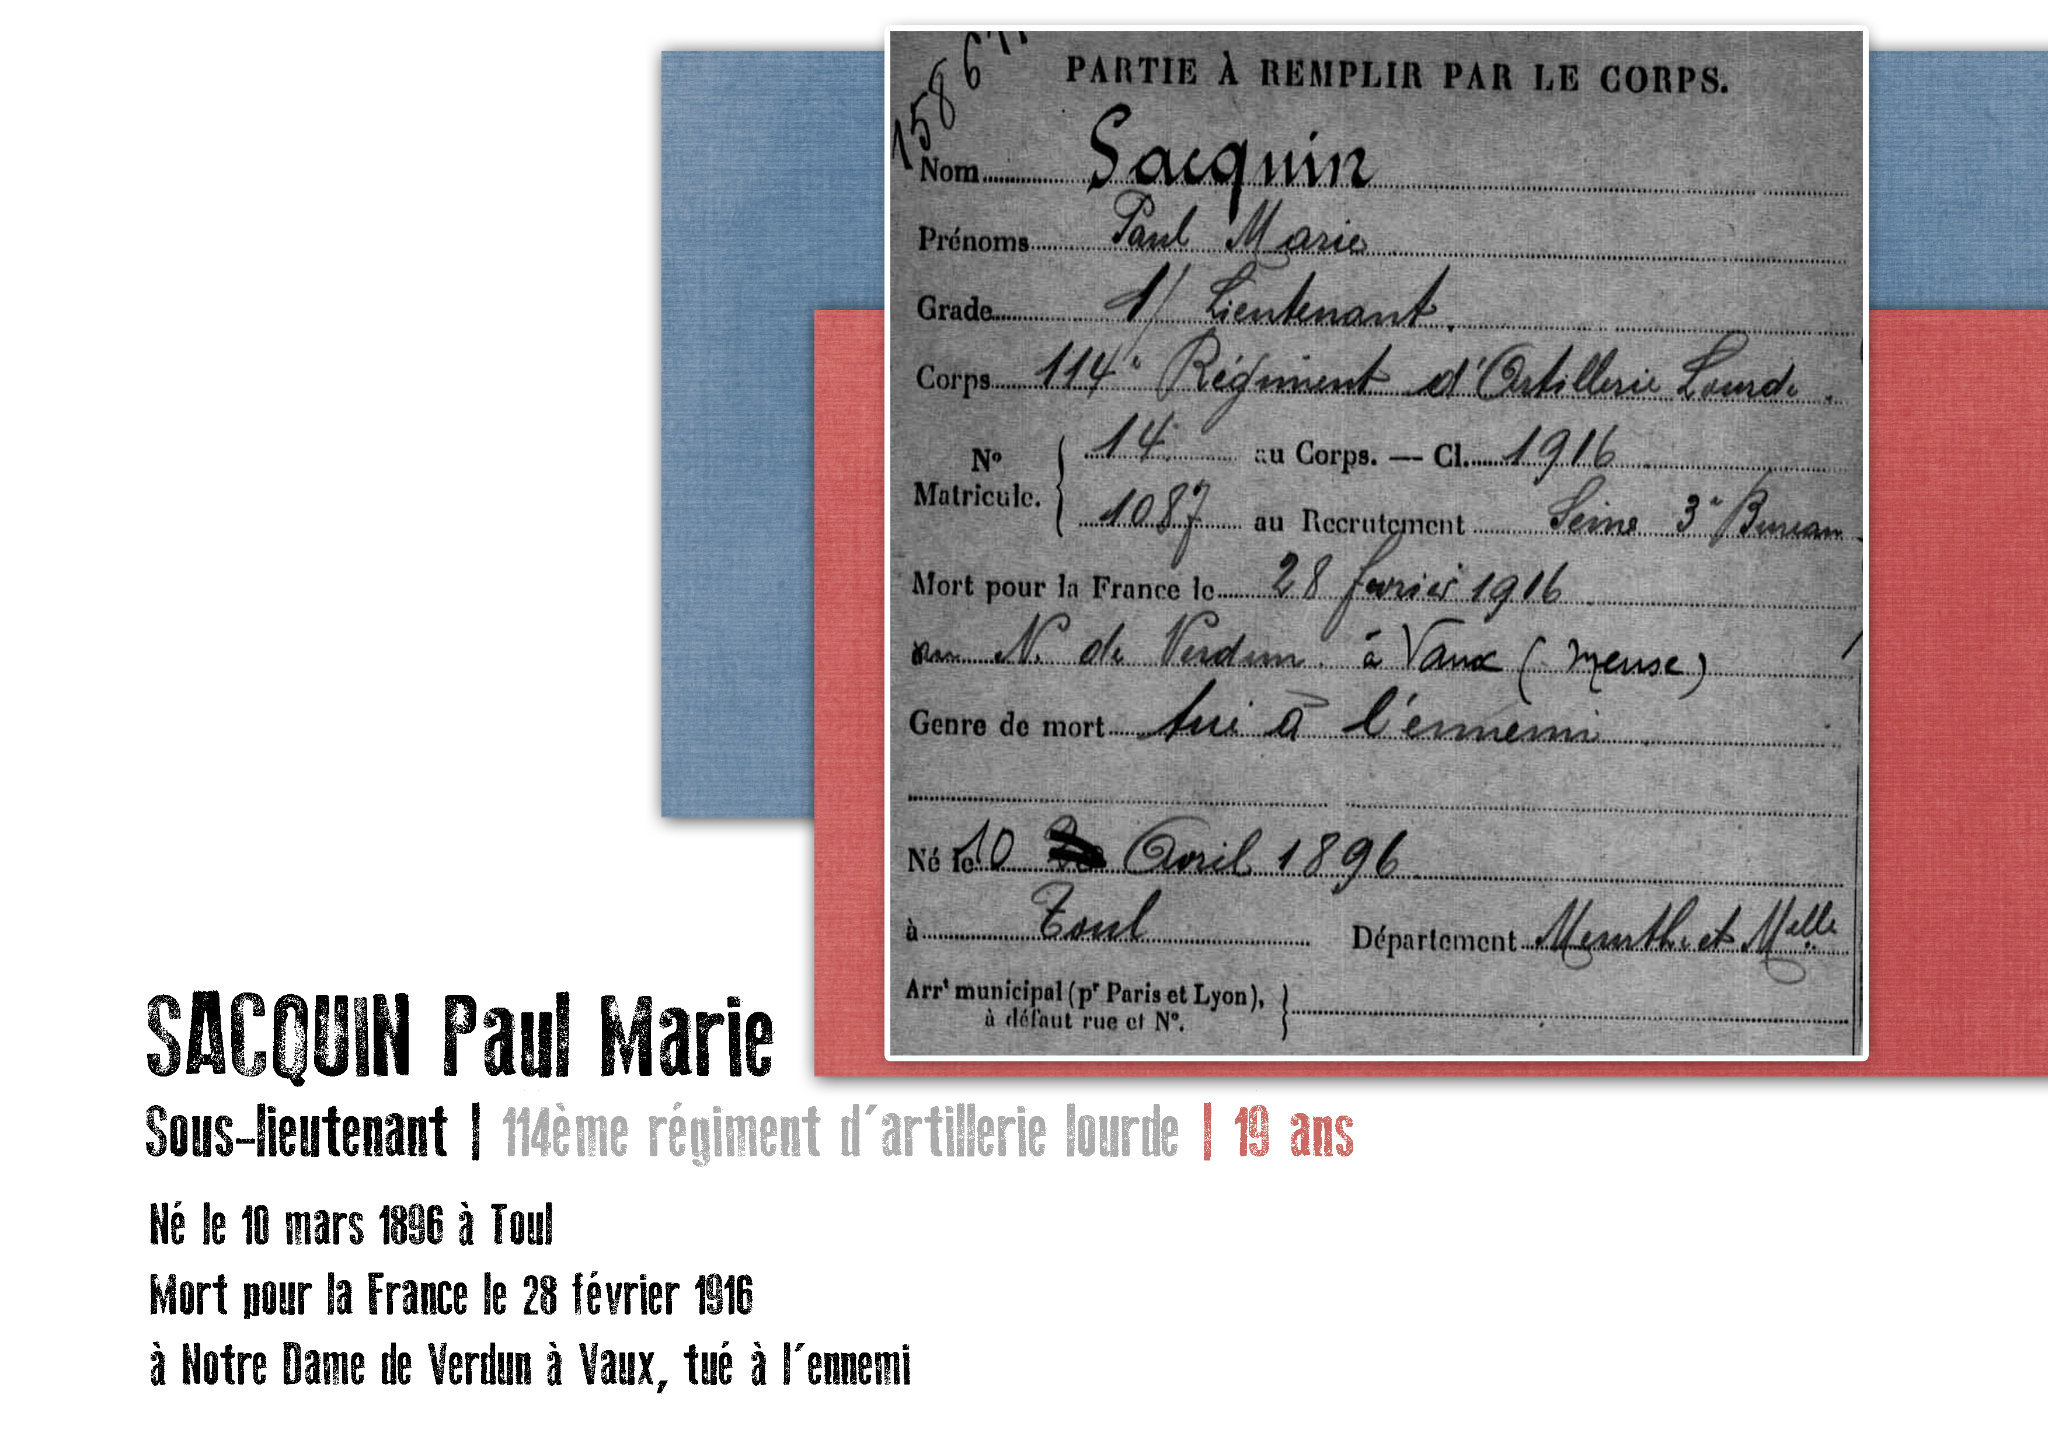 PARTIE À REMPLIR PAR LE CORPS.
Nom Sacquin
Prénoms Paul Marie
Grade S/ Lieutenant.
Corps 114e Régiment d'Artillerie Lourde.
No Matricule. { 14 au Corps. — Cl. 1916
1087 au Recrutement Seine 3e Bureau
Mort pour la France le 28 février 1916
N. de Verdun. à Vaux (Meuse)
Genre de mort tué à l'ennemi
Né le 10 Avril 1896
à Toul Département Meurthe et Melle
Arrt municipal (pr Paris et Lyon), }
à défaut rue et No.
SACQUIN Paul Marie
Sous-lieutenant | 114ème régiment d'artillerie lourde | 19 ans
Né le 10 mars 1896 à Toul
Mort pour la France le 28 février 1916
à Notre Dame de Verdun à Vaux, tué à l'ennemi